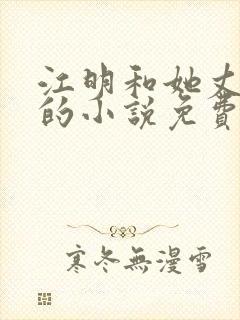 江明和她丈
的小說免費
寒冬無漫雪